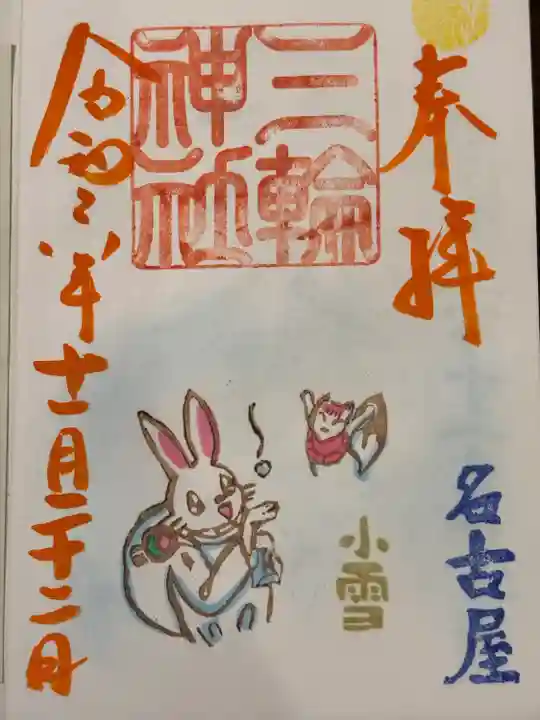 奉拝
名古屋
三輪
神社
小雪
令和三年十一月二十二日